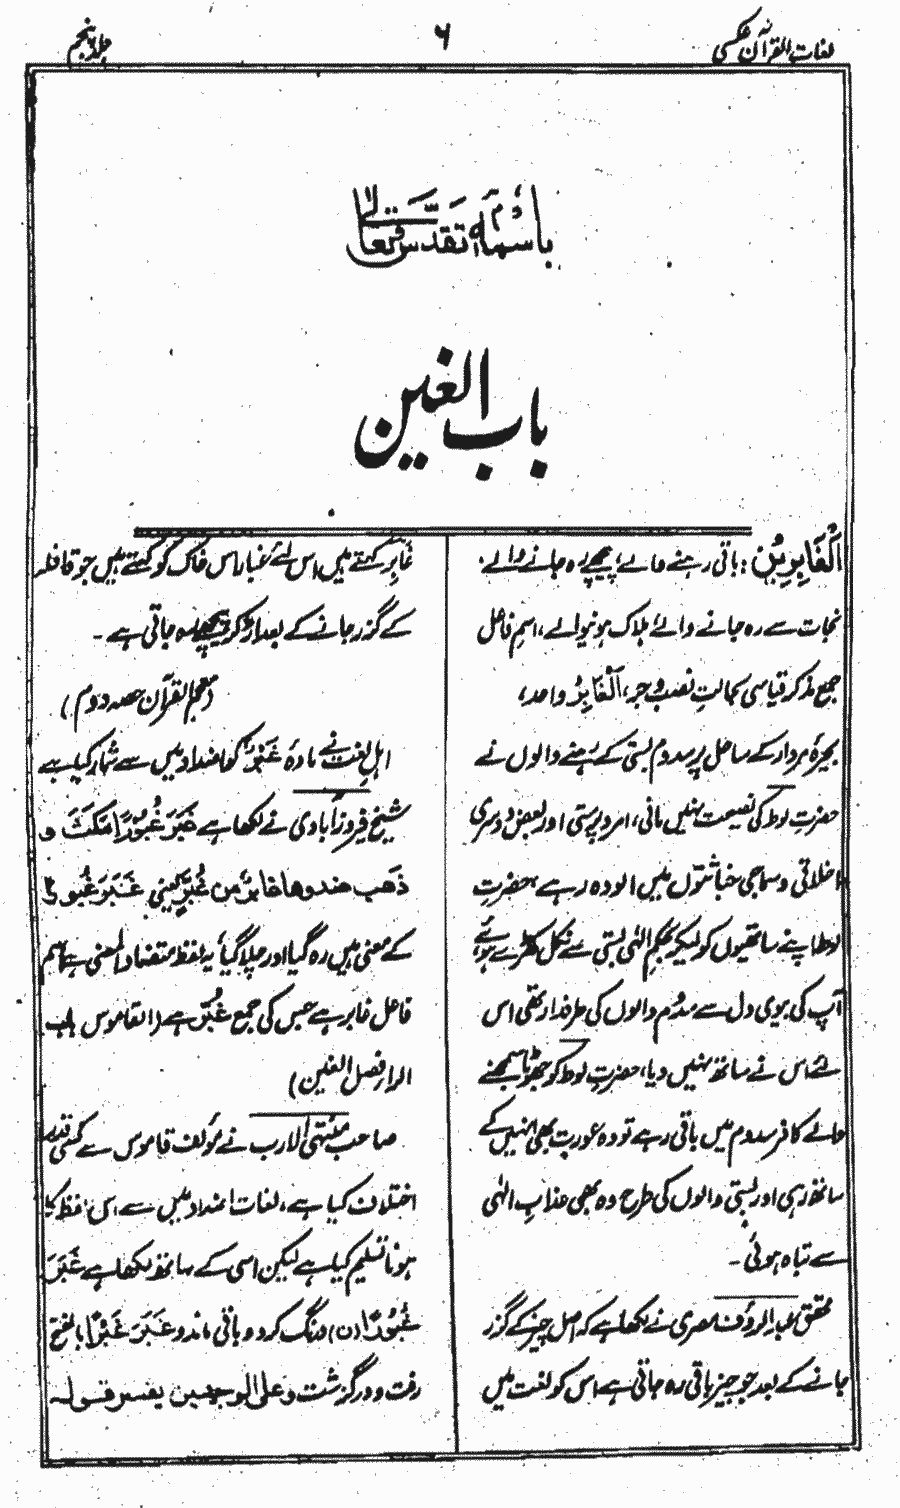 لغات القرآن عکسی
۶
جلد پنجم
باسمہٖ تقدس و تعالیٰ
باب الغین
اَلْغَابِرِیْنَ: باقی رہنے والے، پیچھے رہ جانے والے،
نجات سے رہ جانے والے ہلاک ہونیوالے، اسمِ فاعل
جمع مذکر قیاسی بحالتِ نصب و جر، اَلْغَابِرُ واحد،
بحیرۂ مردار کے ساحل پر سدوم بستی کے رہنے والوں نے
حضرت لوط کی نصیحت نہیں مانی، امرد پرستی اور بعض دوسری
اخلاقی و سماجی خباثتوں میں آلودہ رہے، حضرت
لوط اپنے ساتھیوں کو لیکر بحکمِ الٰہی بستی سے نکل کھڑے ہوئے
آپ کی بیوی دل سے سدوم والوں کی طرفدار تھی اس
لئے اس نے ساتھ نہیں دیا، حضرتِ لوط کو جھوٹا سمجھنے
والے کافر سدوم میں باقی رہے تو وہ عورت بھی انہیں کے
ساتھ رہی اور بستی والوں کی طرح وہ بھی عذابِ الٰہی
سے تباہ ہوئی۔
محقق عبد الرؤف مصری نے لکھا ہے کہ اصل چیز کے گزر
جانے کے بعد جو چیز باقی رہ جاتی ہے اس کو لغت میں
غَابِر کہتے ہیں اس لئے غبار اس خاک کو کہتے ہیں جو قافلہ
کے گزر جانے کے بعد اڑ کر پیچھے رہ جاتی ہے۔
(معجم القرآن حصہ دوم)
اہلِ لغت نے مادۂ غَبْرٌ کو اضداد میں سے شمار کیا ہے
شیخ فیروزآبادی نے لکھا ہے غَبَرَ غُبُوْرًا مَکَثَ و
ذَھَب ضد وھا غابرٌ من غُبَّرٍ یعنی غَبَرَ غُبُورًا
کے معنی ہیں رہ گیا اور چلا گیا یہ لفظ متضاد المعنی ہے اسم
فاعل غابر ہے جس کی جمع غُبَّر ہے (القاموس باب
الراء فصل الغین)
صاحب منتہی الارب نے مؤلف قاموس سے کسی قدر
اختلاف کیا ہے، لغات اضداد میں سے اس لفظ کا
ہونا تسلیم کیا ہے لیکن اسی کے ساتھ لکھا ہے غَبَرَ
غُبُوْرًا (ن) درنگ کرد و باقی ماند و غَبَرَ غَبْرًا بالفتح
رفت و درگزشت و علی الوجھین یفسر قولہ